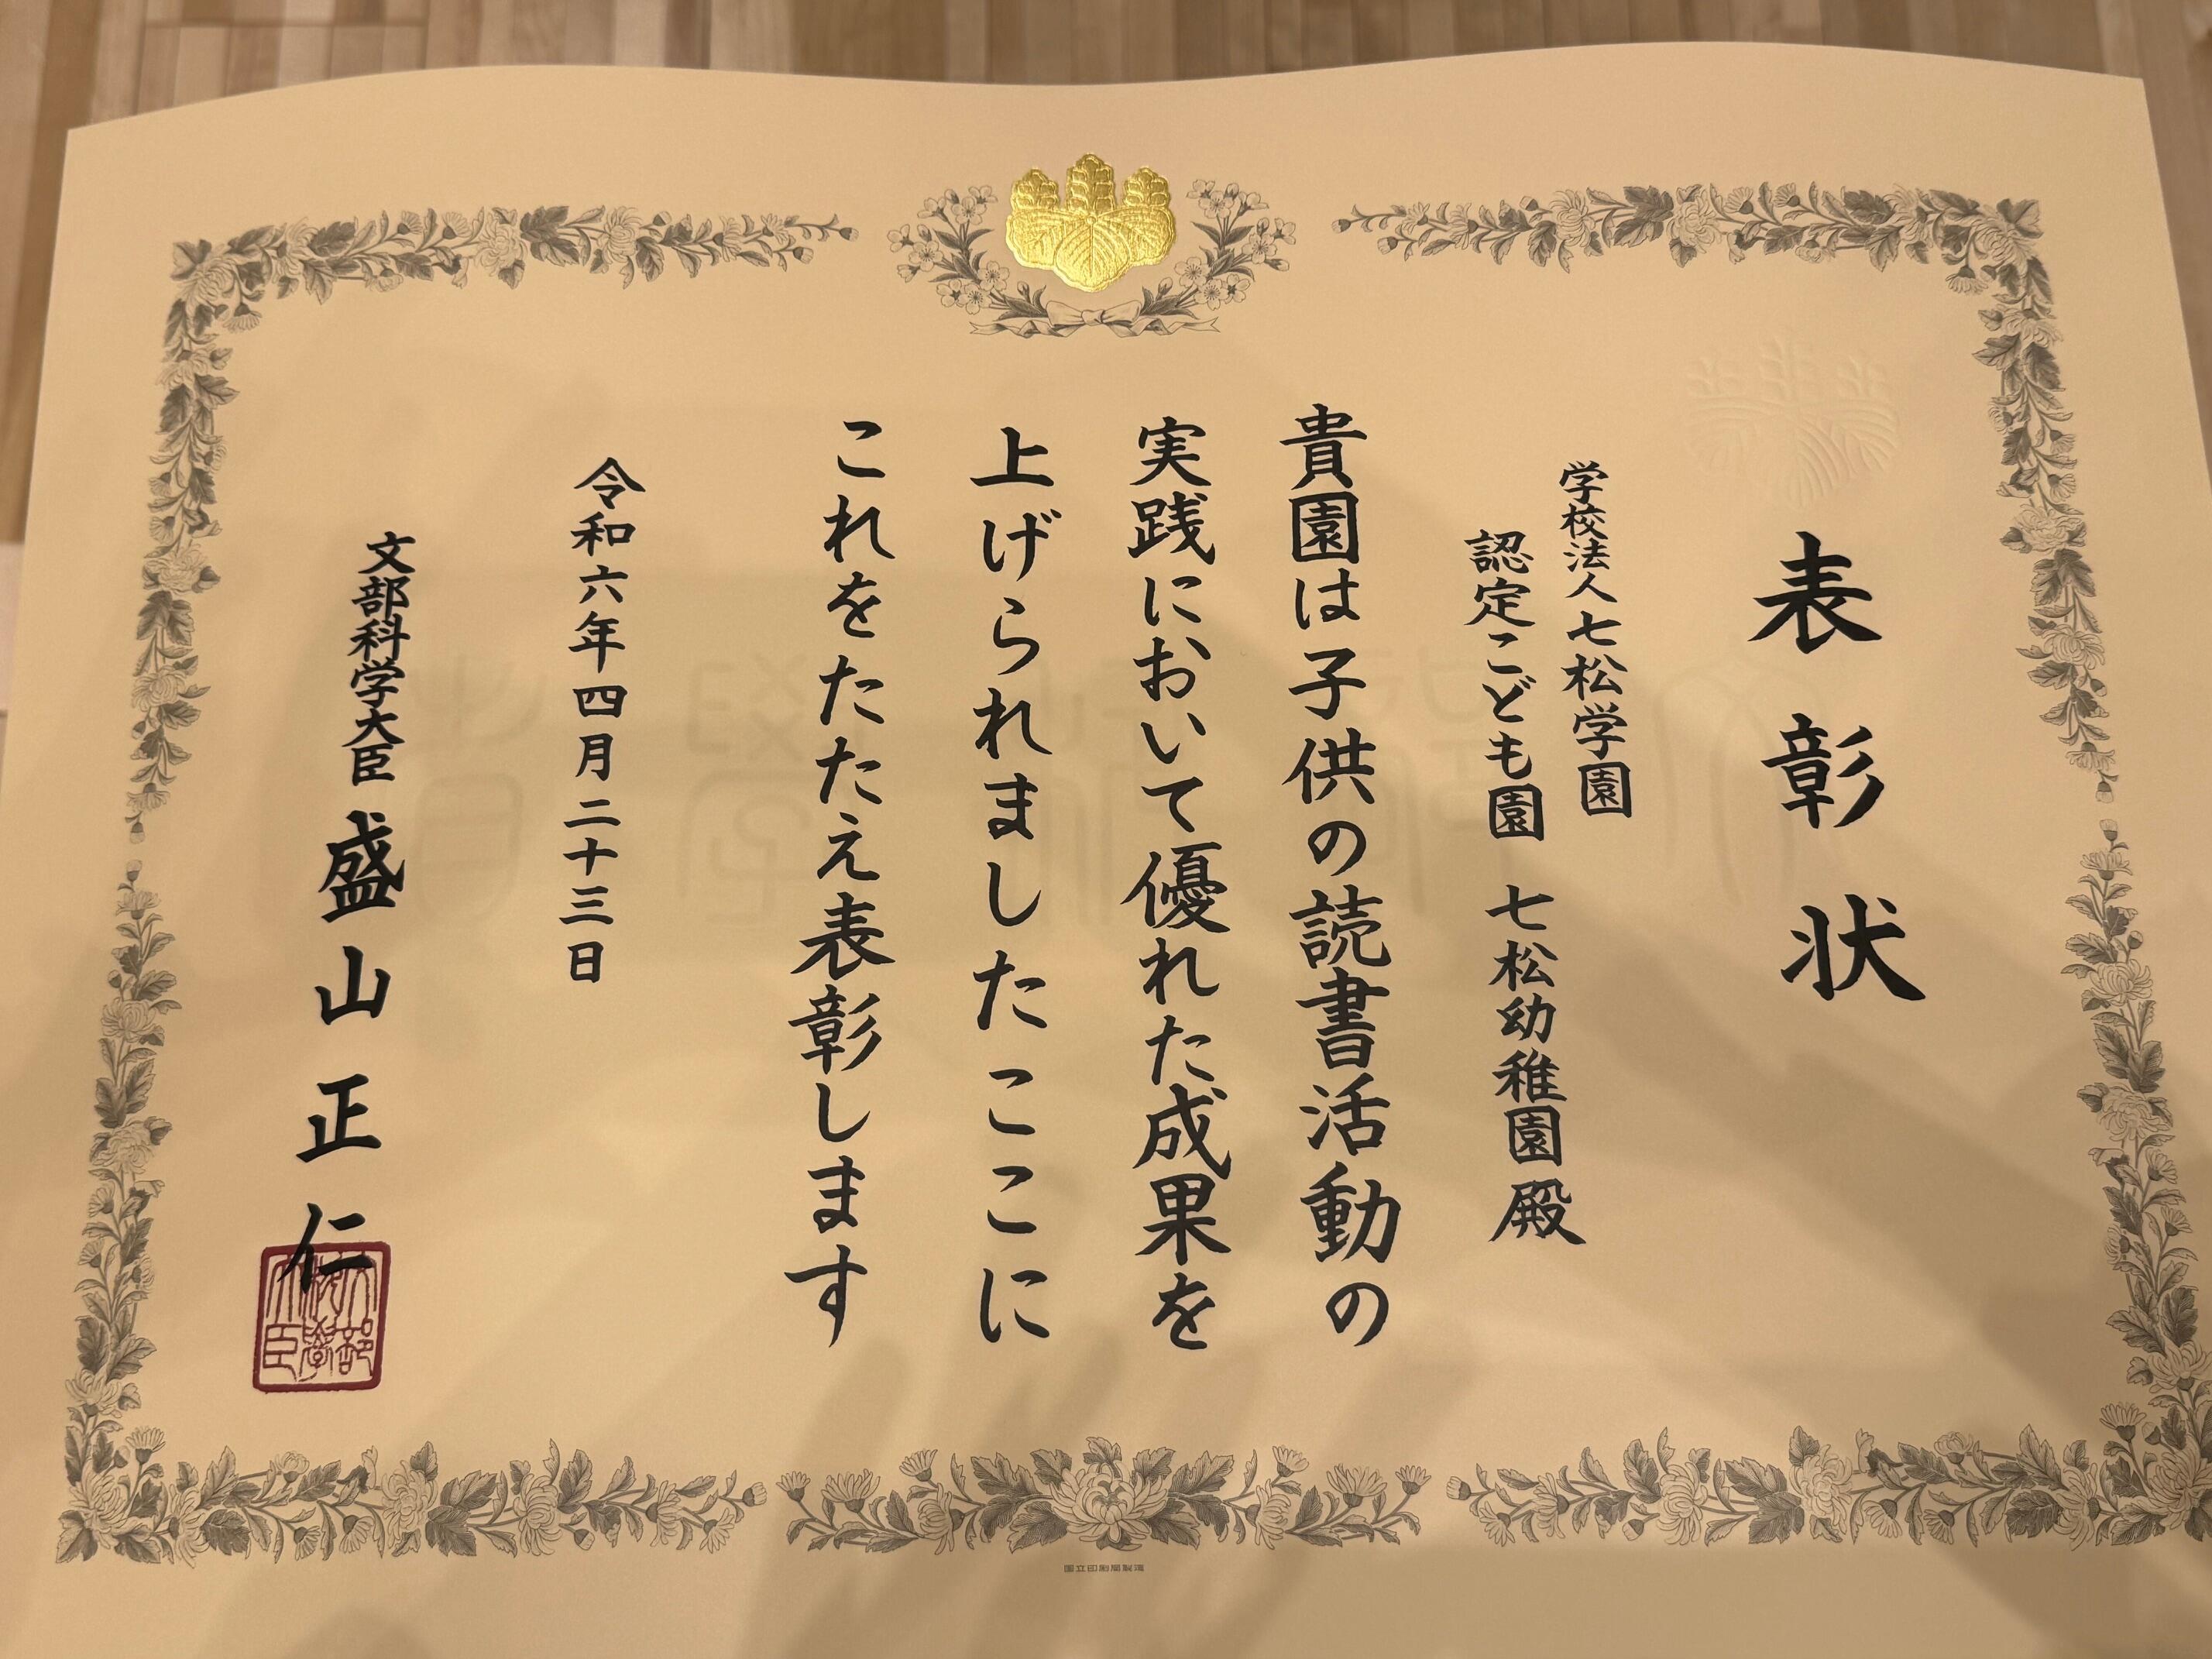 表彰状
学校法人七松学園
認定こども園 七松幼稚園殿
貴園は子供の読書活動の
実践において優れた成果を
上げられましたここに
これをたたえ表彰します
令和六年四月二十三日
文部科学大臣 盛山正仁
文部科學大臣
国立印刷局製造